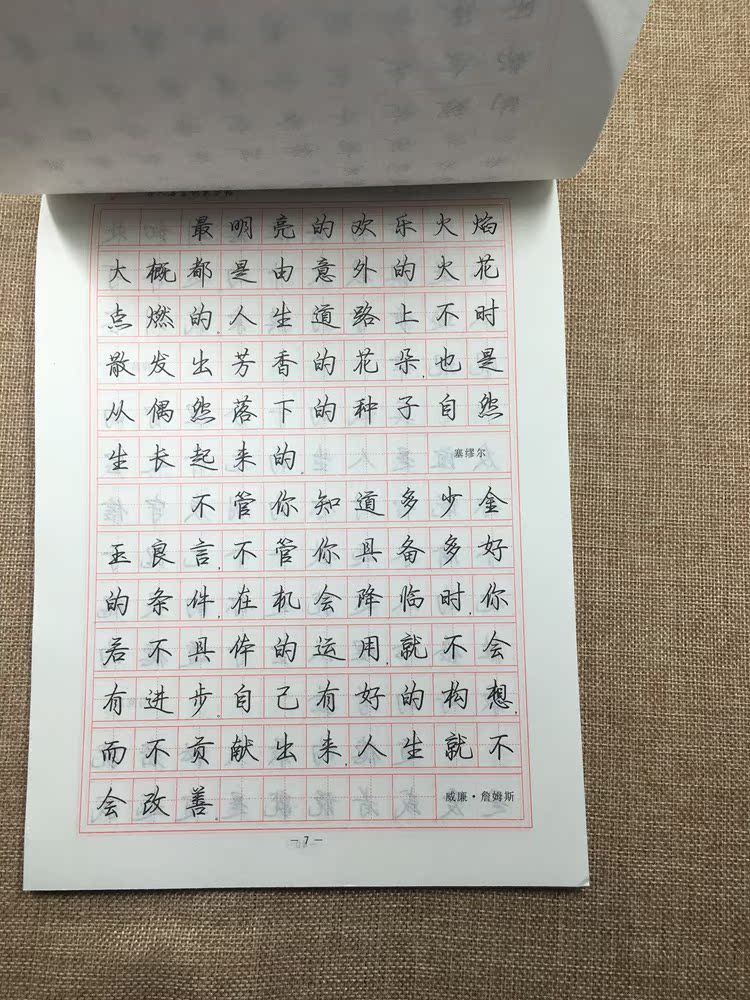 最明亮的欢乐火焰
大概都是由意外的火花
点燃的.人生道路上不时
散发出芳香的花朵.也是
从偶然落下的种子自然
生长起来的. 塞缪尔
不管你知道多少金
玉良言.不管你具备多好
的条件.在机会降临时.你
若不具体的运用.就不会
有进步.自己有好的构想.
而不贡献出来.人生就不
会改善. 威廉·詹姆斯
—7—